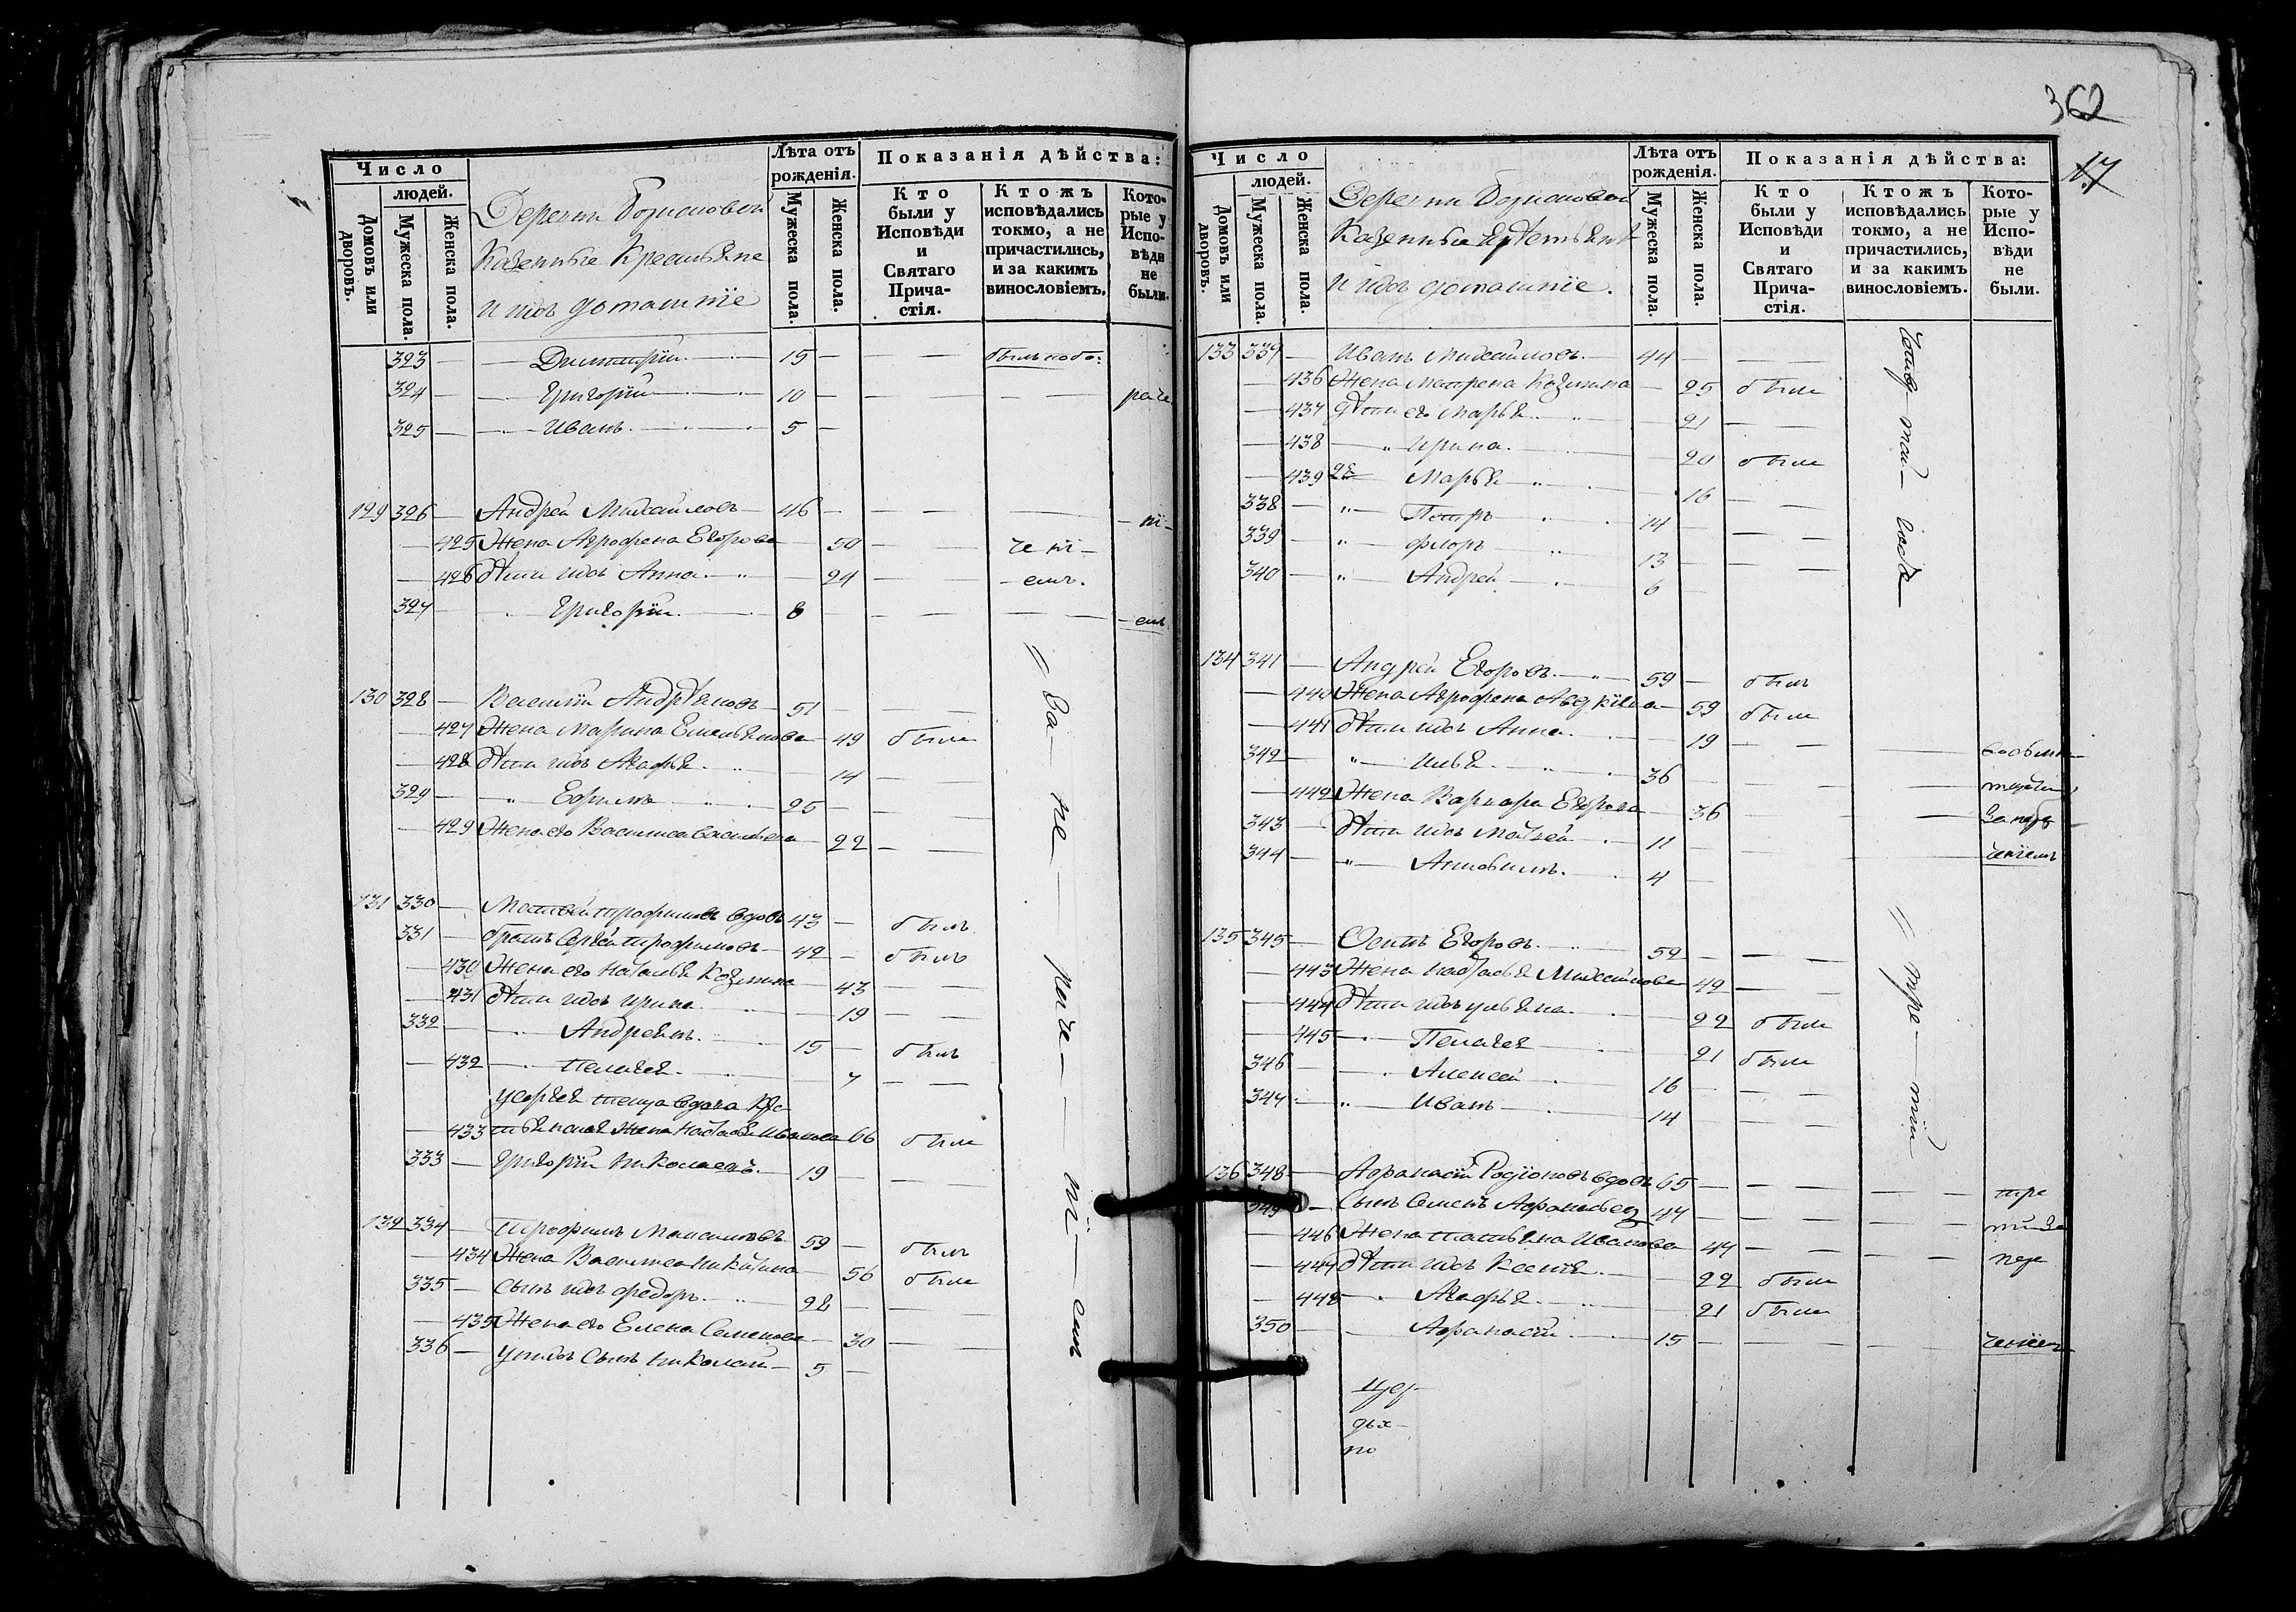 Число
людей.
Домовъ или дворовъ.
Мужеска пола.
Женска пола.
Деревни
Казенные Крестьяне
и ихъ домашніе
Лѣта отъ рожденія.
Мужеска пола.
Женска пола.
Показанія дѣйства:
Кто были у Исповѣди и Святаго Прича- стія.
Ктожъ исповѣдались токмо, а не причастились, и за какимъ винословіемъ.
Кото- рые у Испо- вѣди не были.
323 — Димитрій 15 —
324 — Григорій 10 —
325 — Иванъ 5 —
129 326 — Андрей Михайловъ 46 — — ні —
— 425 Жена Агрофена Егорова — 50 — чені —
— 426 дѣти ихъ Анна — 24 — емъ.
327 Григорій 8 — емъ
130 328 — Василій Андрѣяновъ 51 —
— 427 Жена Марина Емельянова — 49 была
— 428 дѣти ихъ Агафья — 14 —
329 — Ефимъ 25 —
— 429 Жена его Василиса Васильева — 22 —
131 330 — Матвей Трофимовъ вдовъ 43 — былъ
331 — братъ Сергѣй Трофимовъ 42 — былъ
— 430 Жена его Наталья Козмина — 43 —
— 431 дѣти ихъ Ирина — 19 —
332 — Андреянъ 15 — былъ
— 432 — Пелагея — 7 —
у Сергѣя теща вдова Кре-
— 433 стьянская жена Наталья Иванова 66 была
333 — Григорій Николаевъ 19 —
132 334 — Трофимъ Максимовъ 59 — былъ
— 434 Жена Василиса Никитина — 56 была
335 — Сынъ ихъ Федоръ 28 —
— 435 Жена его Елена Семенова — 30 —
336 — у нихъ Сынъ Николай 5 —
= За — не — раче — ні — емъ
362
17
Число
людей.
Домовъ или дворовъ.
Мужеска пола.
Женска пола.
Деревни
Казенные Крестьяне
и ихъ домашніе.
Лѣта отъ рожденія.
Мужеска пола.
Женска пола.
Показанія дѣйства:
Кто были у Исповѣди и Святаго Прича- стія.
Ктожъ исповѣдались токмо, а не причастились, и за какимъ винословіемъ.
Кото- рые у Испо- вѣди не были.
133 339 — Иванъ Михайловъ 44 —
— 436 Жена Матрена Козмина — 25 была
— 437 дѣти его Марья — 21 —
— 438 — Ирина — 20 была
— 439 2я Марья — 16 —
338 — Петръ 14 —
339 — Флоръ 13 —
340 — Андрей 6 —
134 341 — Андрей Егоровъ 59 — былъ
— 440 Жена Агрофена — 59 была
— 441 дѣти ихъ Анна — 19 —
342 — Илья 36 —
— 442 Жена Варвара Егорова 36 — За нера
343 — дѣти ихъ Матвей 11 — ченіемъ
344 — 4 —
135 345 — Осипъ Егоровъ 52 —
— 443 Жена Наталья Михайлова 42 —
— 444 дѣти ихъ Ульяна — 22 была
— 445 — Пелагея 21 была
346 — Алексей 16 —
347 — Иванъ 14 —
136 348 — Афанасій Родіоновъ вдовъ 65 —
349 — Сынъ Семенъ Афанасьевъ 47 —
— 446 Жена Татьяна Иванова 47 —
— 447 дѣти ихъ Ксенія — 22 была
— 448 — Агафья — 21 была
350 — Афанасій 15 —